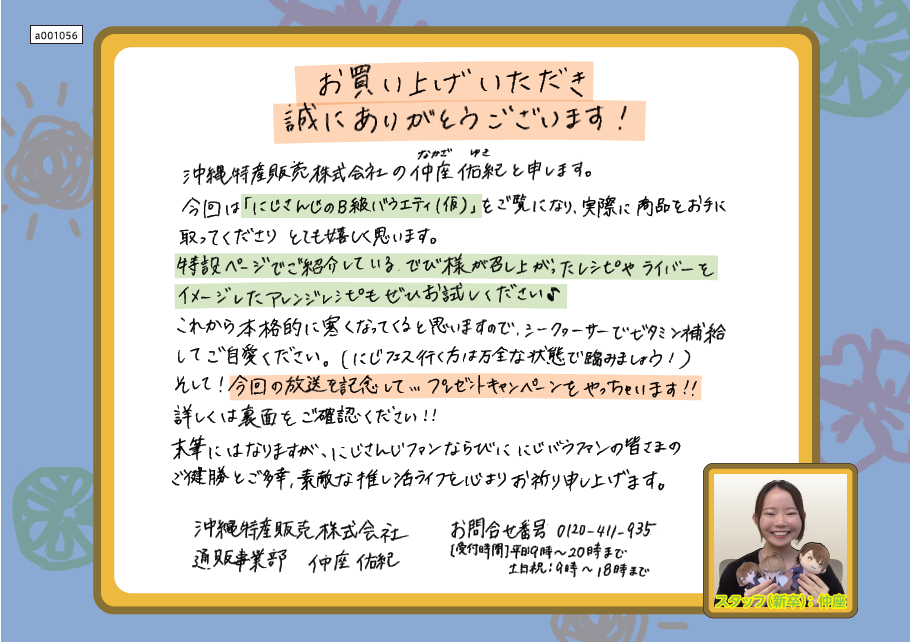 a001056
お買い上げいただき
誠にありがとうございます!
なかざ ゆき
沖縄特産販売株式会社の仲座佑紀と申します。
今回は「にじさんじのB級バラエティ(仮)」をご覧になり、実際に商品をお手に
取ってくださり とても嬉しく思います。
特設ページでご紹介している、でび様が召し上がったレシピや ライバーを
イメージしたアレンジレシピも ぜひお試しください♪
これから本格的に寒くなってくると思いますので、シークヮーサーでビタミン補給
してご自愛ください。(にじフェス行く方は万全な状態で臨みましょう!)
そして!今回の放送を記念して… プレゼントキャンペーンを やっちゃいます!!
詳しくは裏面を ご確認ください!!
末筆にはなりますが、にじさんじファンならびに にじバラファンの皆さまの
ご健勝とご多幸、素敵な推し活ライフを心よりお祈り申し上げます。
沖縄特産販売株式会社
通販事業部 仲座 佑紀
お問合せ番号 0120-411-935
[受付時間]平日9時〜20時まで
土日祝:9時〜18時まで
スタッフ(新卒):仲座